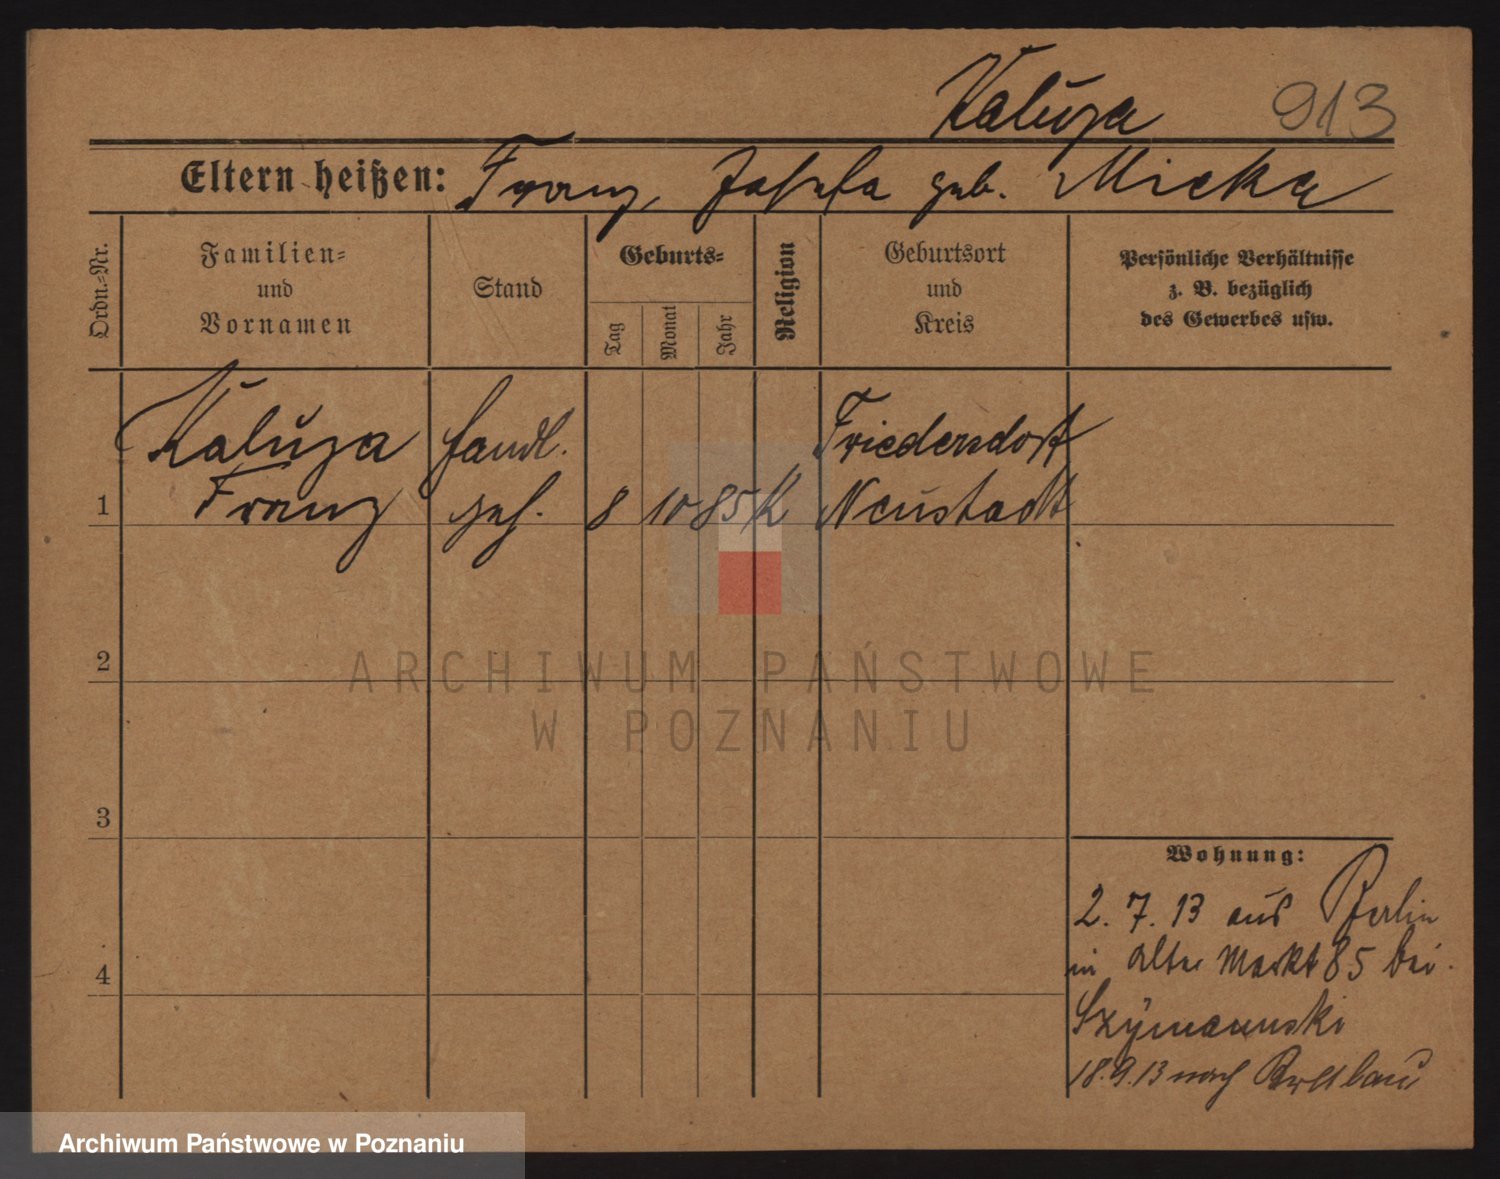 Kaluza 913
Eltern heißen: Franz, Josefa geb. Micka
Ordn.-Nr.
Familien-
und
Vornamen
Stand
Geburts-
Tag
Monat
Jahr
Religion
Geburtsort
und
Kreis
Persönliche Verhältnisse
z. B. bezüglich
des Gewerbes usw.
Kaluza Handl. Friedersdorf
1 Franz geh. 8 10 85 K Neustadt
2
3
4
Wohnung:
2. 7. 13 aus Berlin
in Alter Markt 85 bei
Szymanski
18. 9. 13 nach
ARCHIWUM PAŃSTWOWE
W POZNANIU
Archiwum Państwowe w Poznaniu